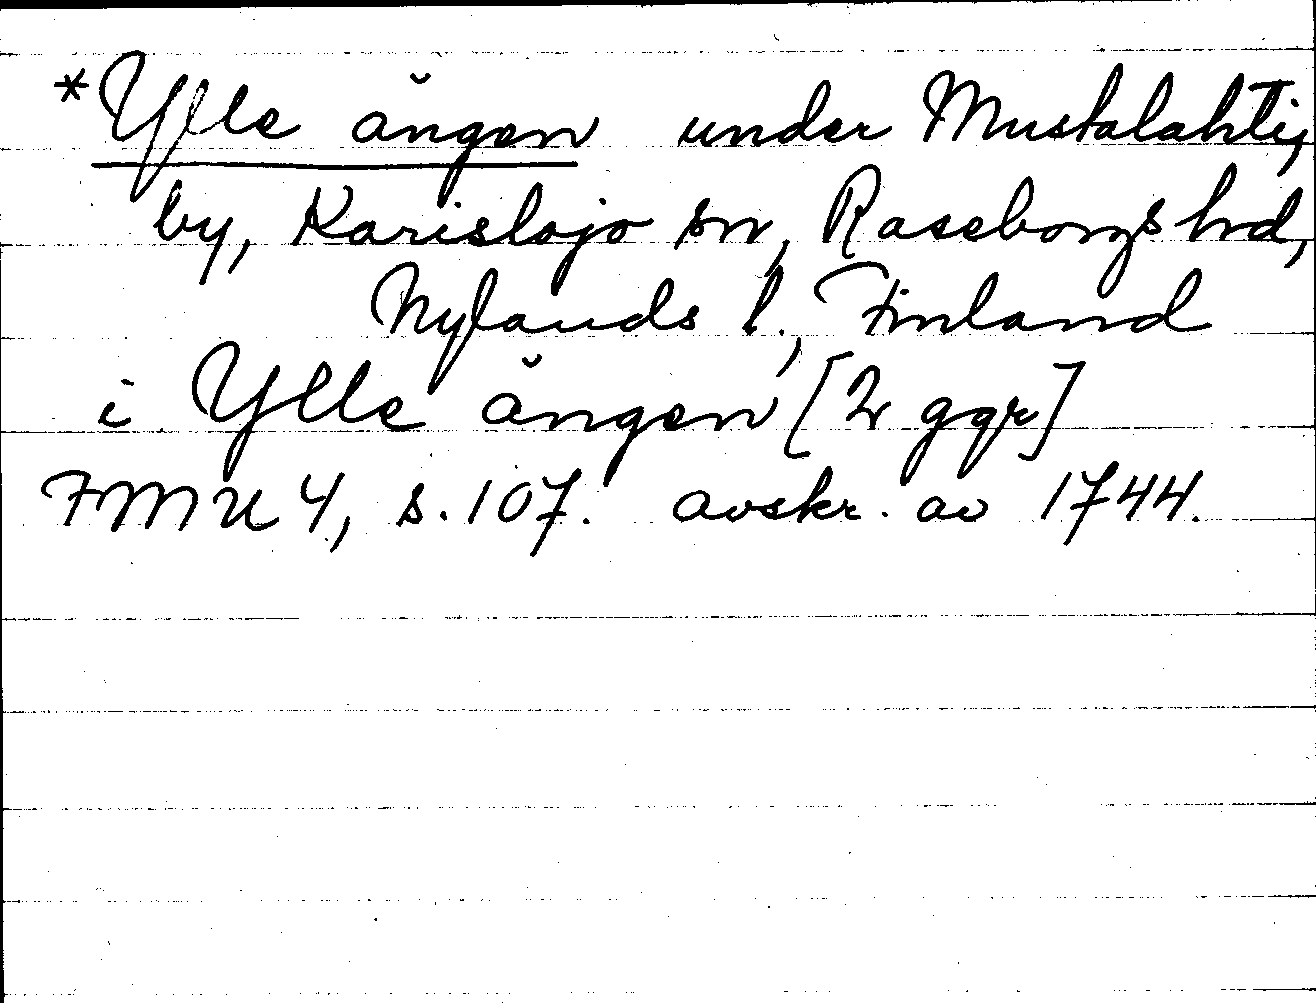 *Ylle ängen under Mustalahti
by, Karislojo sn, Raseborgs hd,
Nylands l., Finland
i Ylle ängen [2 ggr]
FMU 4, s. 107. avskr. av 1744.